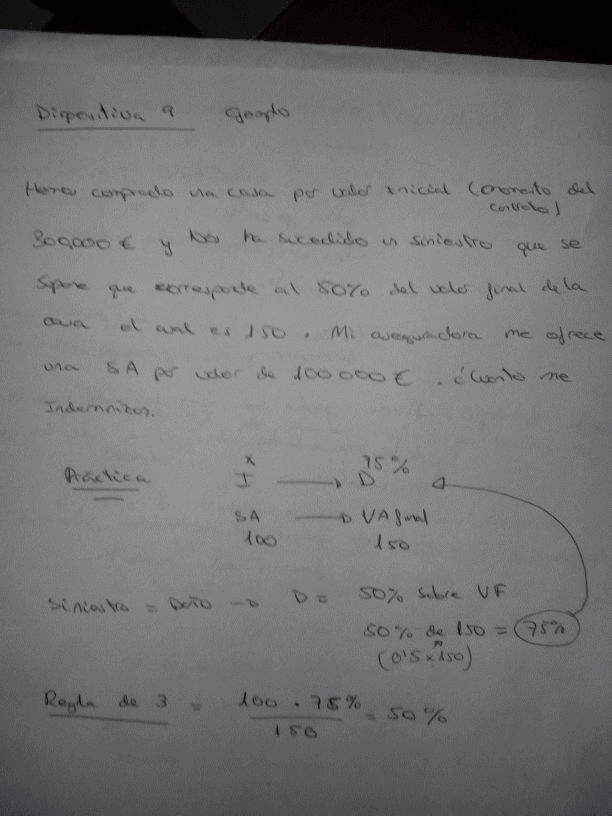 Diapositiva 9 Ejemplo
Hemos comprado una casa por valor inicial (momento del
contrato)
300,000 € y Nos ha sucedido un siniestro que se
Supone que corresponde al 50% del valor final de la
casa el cual es 150. Mi aseguradora me ofrece
una SA por valor de 100000 €. ¿Cuánto me
Indemnizan.
Práctica
x 75%
I → D
SA → VA final
100 150
Siniestro = Daño → D = 50% Sobre VF
50% de 150 = 75%
(0'5 x 150)
Regla de 3 = 100 . 75% = 50%
150